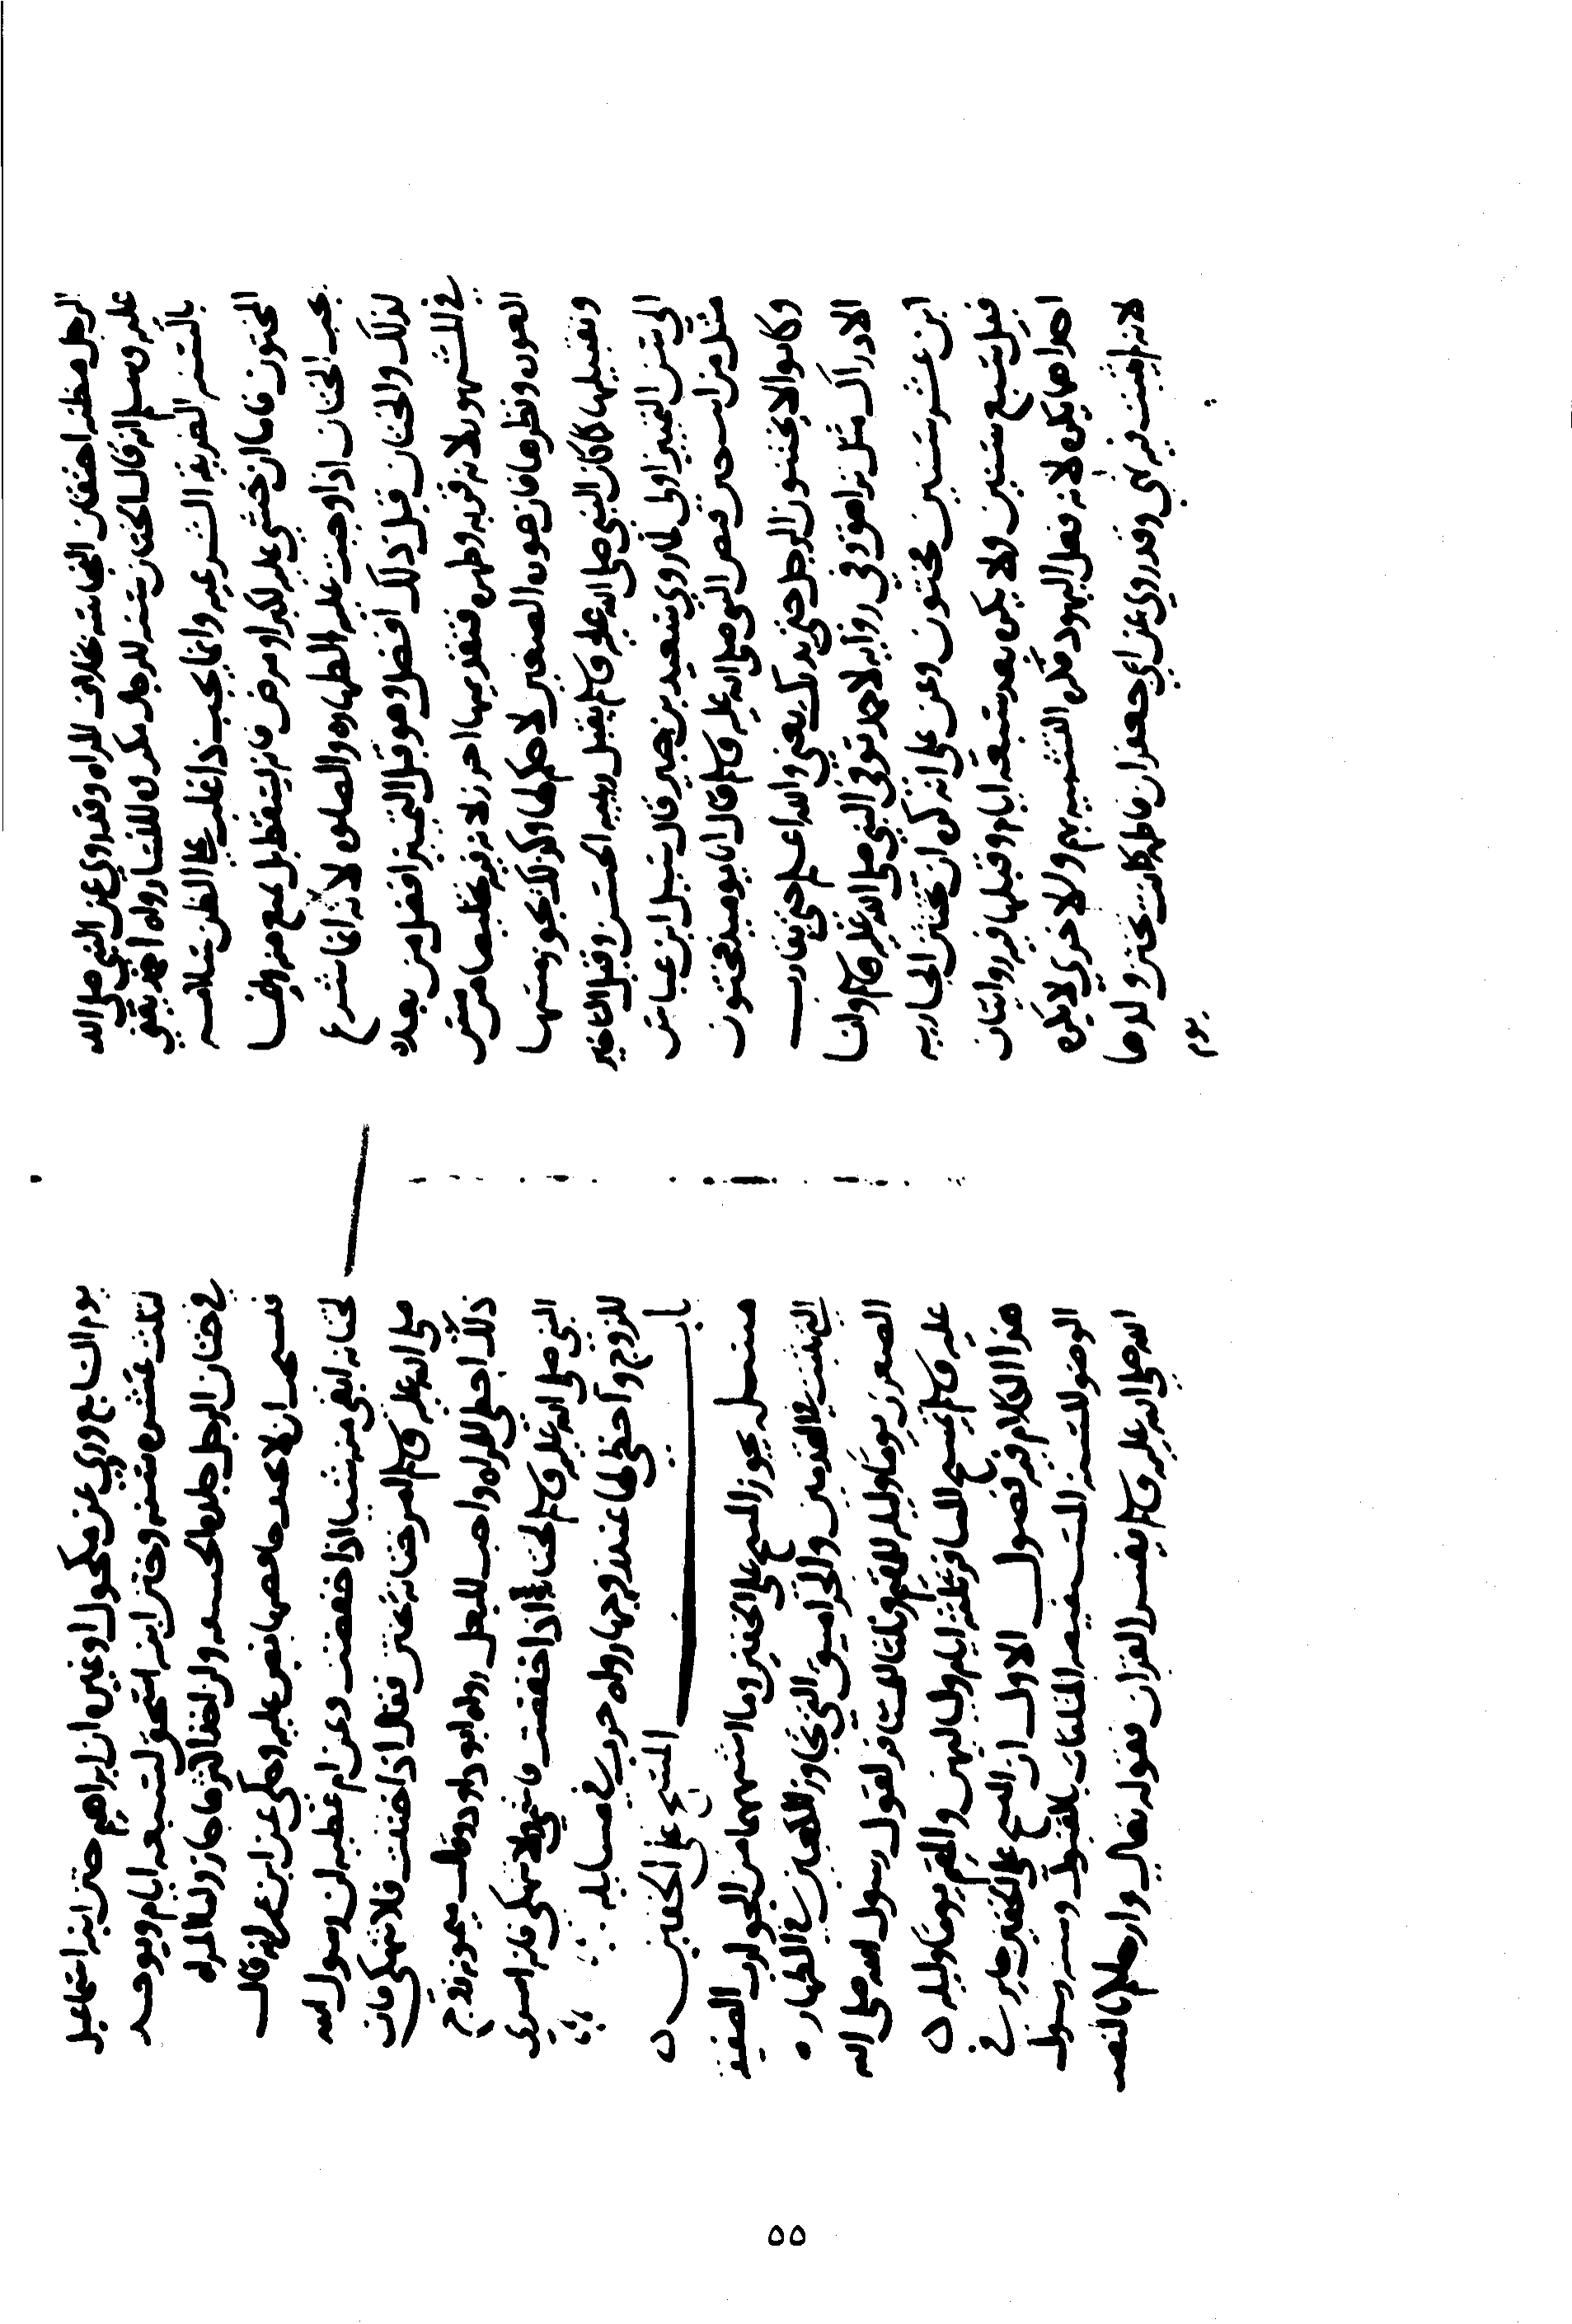 الرجل مظنه احتقان النجاسه بخلاف المراه وقد روي عن النبي صلى الله
عليه وسلم انه قال الختان سنه للرجال مكرمه للنساء رواه احمد يعني
بالسنه الطريقه الشرعيه وانما يجب اذا غلب على الظن سلامه
المختون فاما ان خشي عليه لكبر او مرض فانه يسقط بل يمنع منه وانما
يجب الختان اذا وجبت عليه الطهاره والصلوه لانه انما شرع
لذلك والختان قبل ذلك افضل وهو قبل التمييز افضل من بعده
في المشهور لانه قربه وطهره فتقديمها احرز لان فيه تخليصا من مس
العوره ونظرها فان عوره الصغير لا حكم لها وكذلك يجوز مسها
وتقبيلها كما كان النبي صلى الله عليه وسلم يقبل زبيبه الحسن وقيل التاخير
الى سن التمييز اولى لما روي سعيد بن جبير قال سيل ابن عباس
مثل من انت حين قبض النبي صلى الله عليه وسلم قال انا يوميذ مختون
وكانوا لا يختنون الرجل حتى يدرك يعني والله اعلم حتى يقارب
الادراك مثل المراهق وفي روايه لاحمد توفي النبي صلى الله عليه وسلم وانا
ابن عشر سنين مختون وعن علي انه كره ان تختن الجاريه
قبل سبع سنين ولا يكره بعد سبعه ايام وقبلها فيه روايتان
احداهما يكره لانه فعل اليهود فكره التشبه بهم والاخرى لا يكره
لانه لم يثبت فيه نهي وقد روي عن ابي جعفر ان فاطمه كانت تختن ولدها
يوم
يوم السابع وروي عن مكحول او غيره ان ابراهيم ختن ابنه اسماعيل
لثلث عشره سنه وختن ابنه اسحق لسبعه ايام ويوخذ
في ختان الرجل جلده الحشفه وان اخذ اكثرها جاز واما المراه
فيستحب ان لا تجذ خافضتها نص عليه وحكي عن ابن عمر انه قال
لختانه ابقي منه شيا اذا خفضت وعن ام عطيه ان رسول الله
صلى الله عليه وسلم امر ختانه تختن فقال اذا ختنت فلا تنهكي فان
ذلك احظى للمراه واحب للبعل رواه ابو داود وقالت ميمونه زوج
النبي صلى الله عليه وسلم لختانه اذا خفضت فاشمي ولا تنهكي فانه اسرى
للزوج واحظى لها عند زوجها رواه حرب في مسايله
باب المسح على الخفين
مسله يجوز المسح على الخفين وما اشبههما من الجوارب الصفيقه
التي تثبت في القدمين والجراميق التي تجاوز الكعبين في الطهاره
الصغرى يوما وليله للمقيم وثلثا للمسافر لقول رسول الله صلى الله
عليه وسلم يمسح المسافر ثلثه ايام ولياليهن والمقيم يوما وليله
هذا الكلام فيه فصول الاول ان المسح على الخفين جايز في
الوضو للسنه المستفيضه المتلقاه بالقبول وسنه رسول
الله صلى الله عليه وسلم تفسر القران فقوله تعالى وارجلكم بالنصب
٥٥